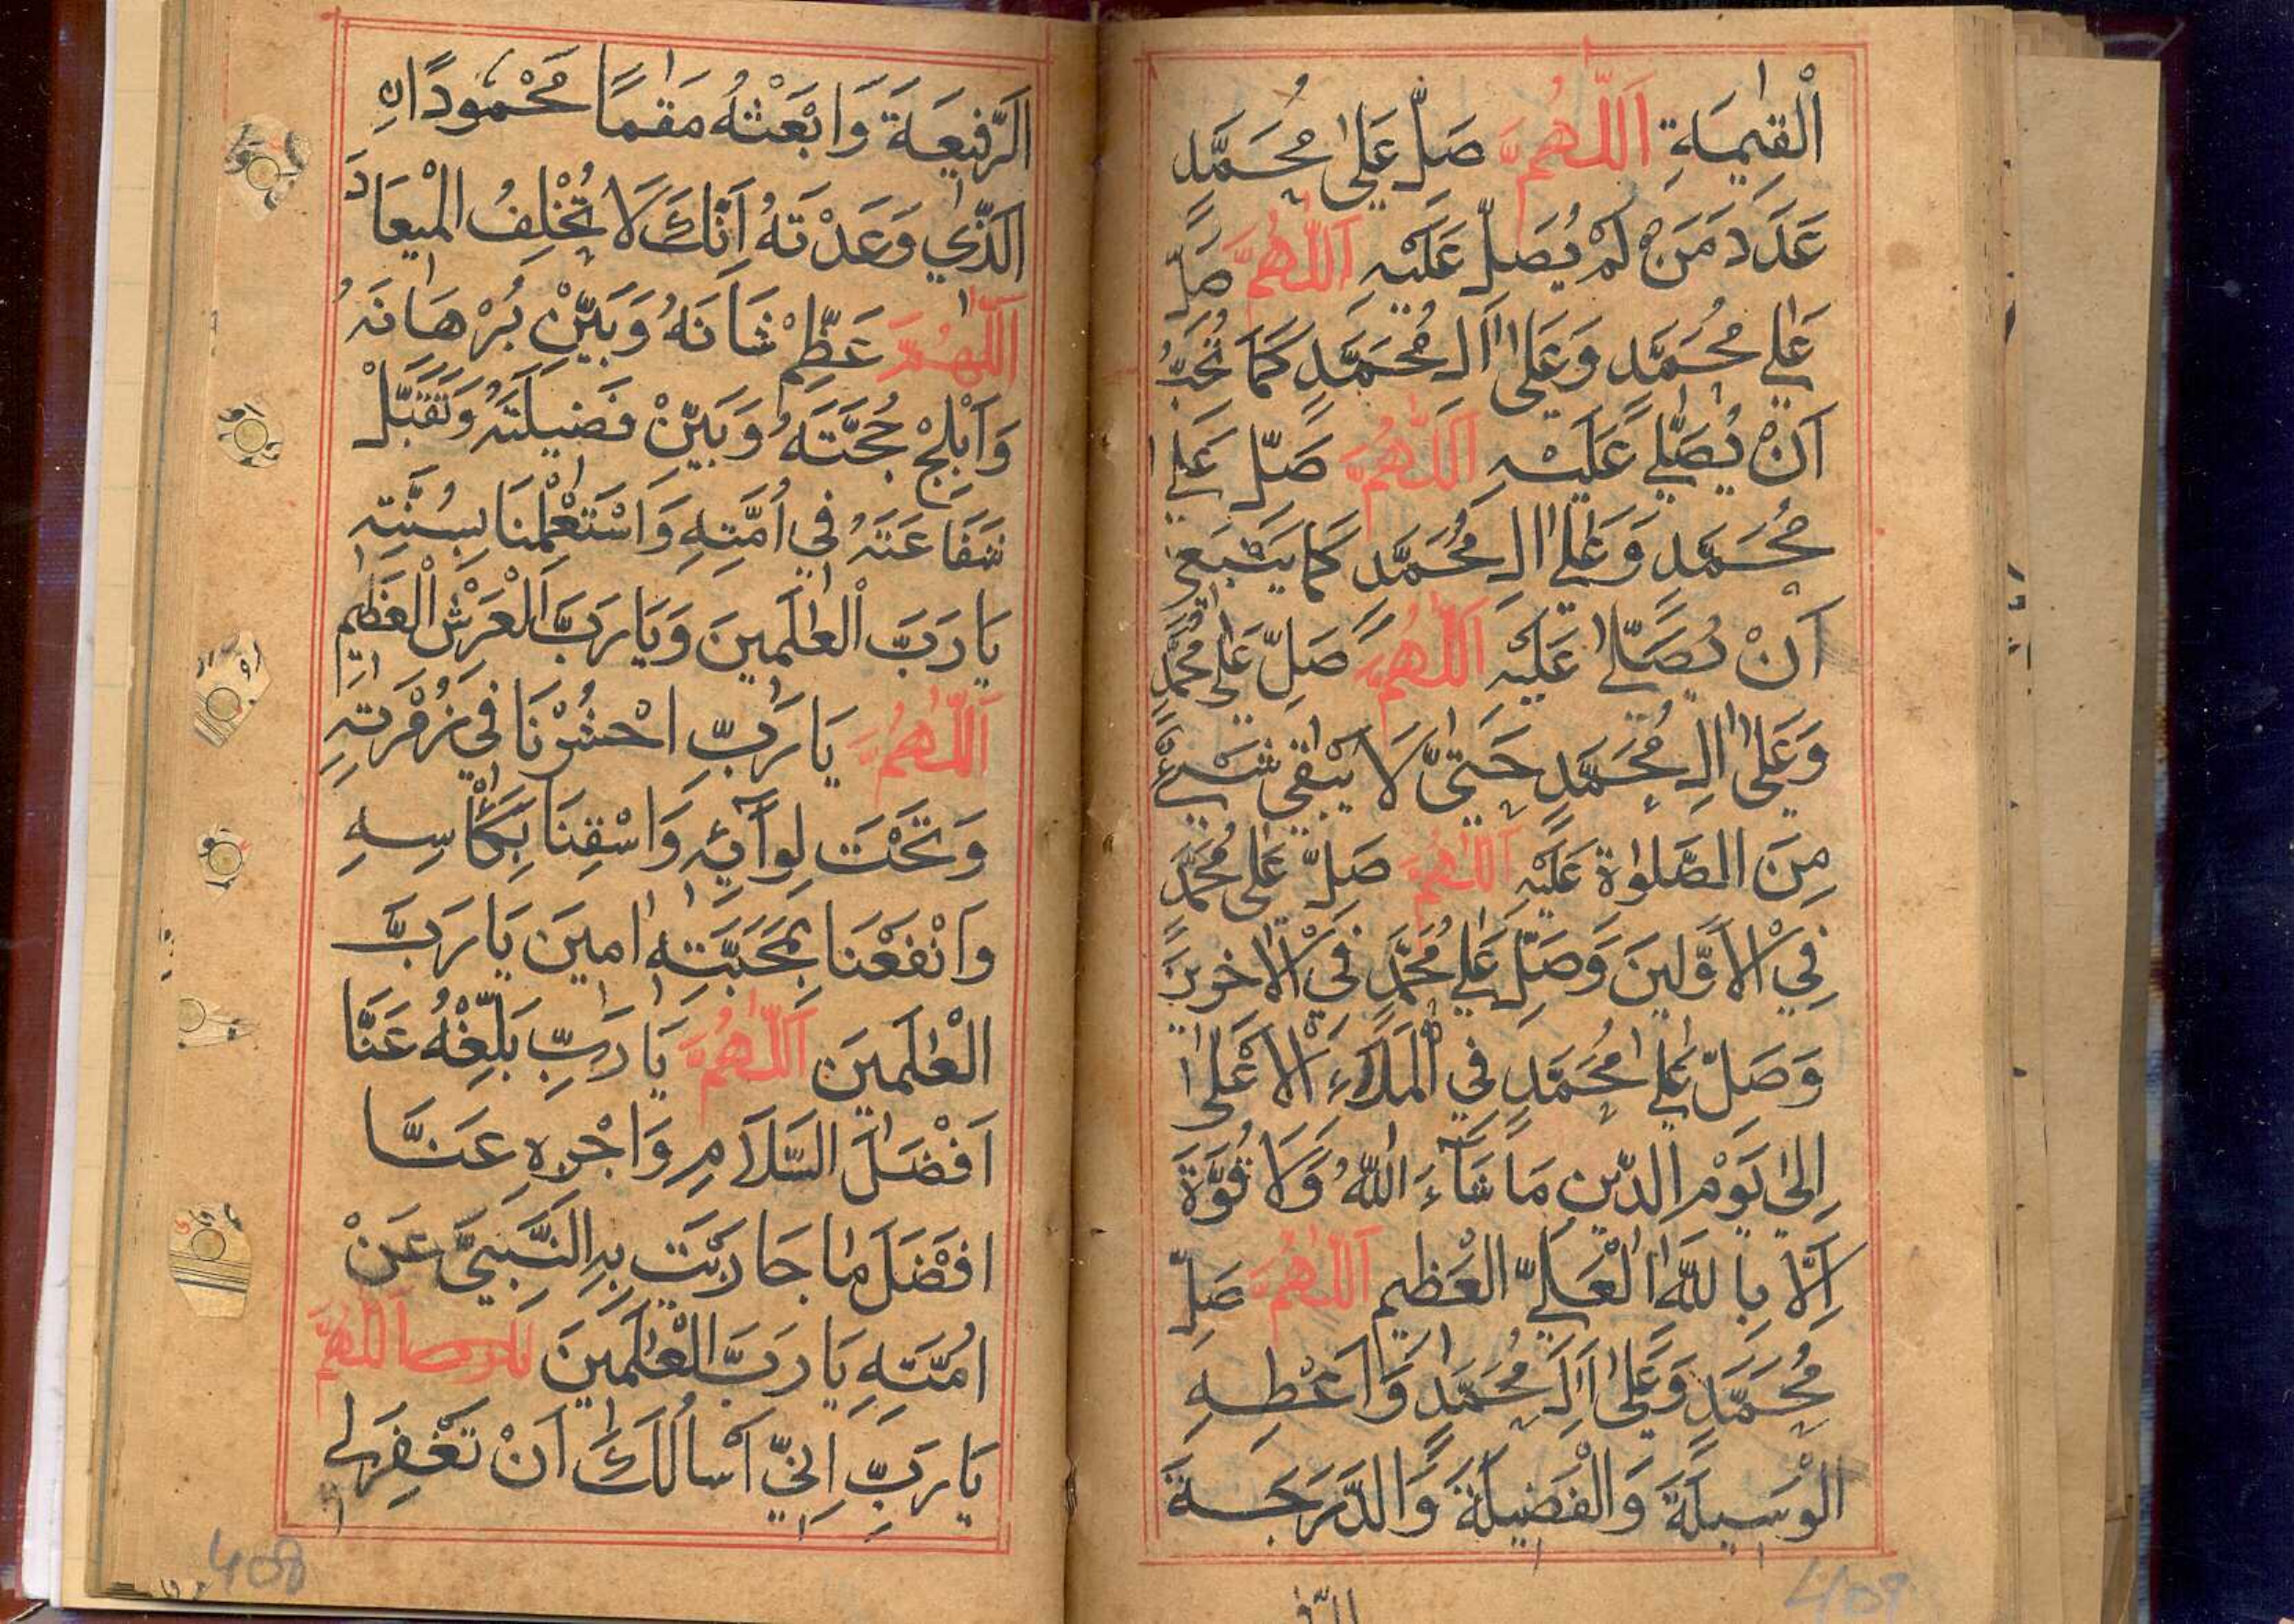 الْقِيٰمَةِ اَللّٰهُمَّ صَلِّ عَلٰى مُحَمَّدٍ
عَدَدَ مَنْ لَمْ يُصَلِّ عَلَيْهِ اَللّٰهُمَّ صَلِّ
عَلٰى مُحَمَّدٍ وَعَلٰى اٰلِ مُحَمَّدٍ كَمَا تُحِبُّ
اَنْ يُصَلّٰي عَلَيْهِ اَللّٰهُمَّ صَلِّ عَلٰى
مُحَمَّدٍ وَعَلٰى اٰلِ مُحَمَّدٍ كَمَا يَنْبَغِي
اَنْ يُصَلّٰى عَلَيْهِ اَللّٰهُمَّ صَلِّ عَلٰى مُحَمَّدٍ
وَعَلٰى اٰلِ مُحَمَّدٍ حَتّٰى لَا يَبْقٰى شَيْءٌ
مِنَ الصَّلٰوةِ عَلَيْهِ اَللّٰهُمَّ صَلِّ عَلٰى مُحَمَّدٍ
فِي الْاَوَّلِينَ وَصَلِّ عَلٰى مُحَمَّدٍ فِي الْاٰخِرِينَ
وَصَلِّ عَلٰى مُحَمَّدٍ فِي الْمَلَاءِ الْاَعْلٰى
اِلٰى يَوْمِ الدِّينِ مَا شَآءَ اللّٰهُ وَلَا قُوَّةَ
اِلَّا بِاللّٰهِ الْعَلِيِّ الْعَظِيمِ اَللّٰهُمَّ صَلِّ
مُحَمَّدٍ وَعَلٰى اٰلِ مُحَمَّدٍ وَاَعْطِهِ
الْوَسِيلَةَ وَالْفَضِيلَةَ وَالدَّرَجَةَ
الرَّفِيعَةَ وَابْعَثْهُ مَقٰمًا مَحْمُودًا نِ
الَّذِي وَعَدْتَهُ اِنَّكَ لَا تُخْلِفُ الْمِيعَادَ
اَللّٰهُمَّ عَظِّمْ شَانَهُ وَبَيِّنْ بُرْهَانَهُ
وَاَبْلِجْ حُجَّتَهُ وَبَيِّنْ فَضِيلَتَهُ وَتَقَبَّلْ
شَفَاعَتَهُ فِي اُمَّتِهِ وَاسْتَعْمِلْنَا بِسُنَّتِهِ
يَا رَبَّ الْعٰلَمِينَ وَيَا رَبَّ الْعَرْشِ الْعَظِيمِ
اَللّٰهُمَّ يَا رَبِّ احْشُرْنَا فِي زُمْرَتِهِ
وَتَحْتَ لِوَآئِهِ وَاسْقِنَا بِكَأْسِهِ
وَانْفَعْنَا بِمَحَبَّتِهِ اٰمِينَ يَا رَبَّ
الْعٰلَمِينَ اَللّٰهُمَّ يَا رَبِّ بَلِّغْهُ عَنَّا
اَفْضَلَ السَّلَامِ وَاجْزِهِ عَنَّا
اَفْضَلَ مَا جَازَيْتَ بِهِ النَّبِيَّ عَنْ
اُمَّتِهِ يَا رَبَّ الْعٰلَمِينَ اَللّٰهُمَّ
يَا رَبِّ اِنِّي اَسْاَلُكَ اَنْ تَغْفِرَلِي
408
409